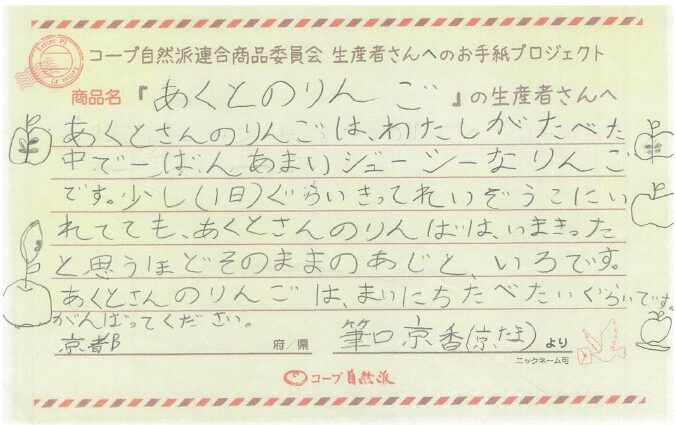 コープ自然派連合商品委員会 生産者さんへのお手紙プロジェクト
商品名『あくとのりんご』の生産者さんへ
あくとさんのりんごは、わたしがたべた
中で一ばんあまいジューシーなりんご
です。少し(1日)ぐらいきってれいぞうこにい
れてても、あくとさんのりんごは、いまきった
と思うほどそのままのあじと、いろです。
あくとさんのりんごは、まいにちたべたいぐらいです。
がんばってください。
京都 府/県 筆口京香(京たま)より
ニックネーム可
コープ自然派